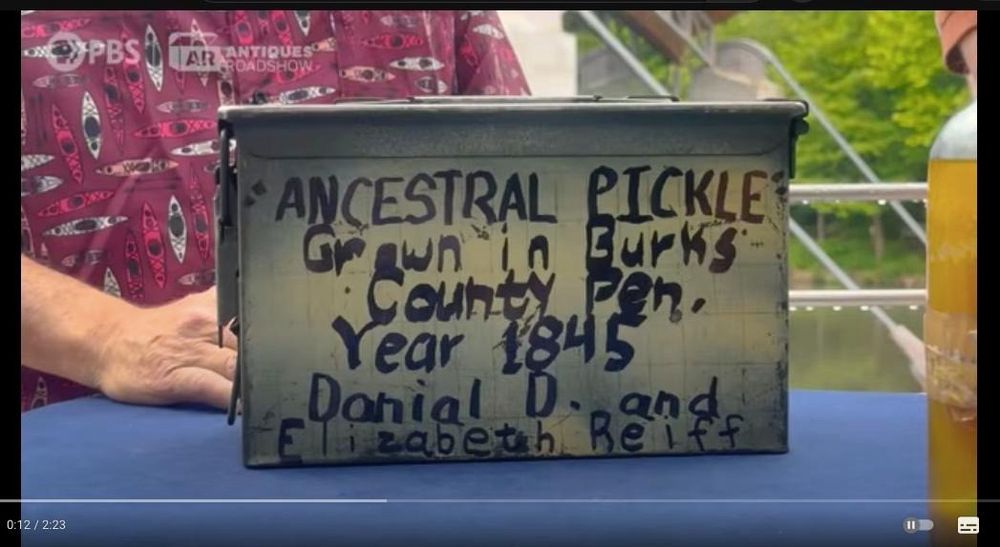 PBS
AR ANTIQUES ROADSHOW
ANCESTRAL PICKLE
Grown in Burks
County Pen.
Year 1845
Danial D. and
Elizabeth Reiff
0:12 / 2:23